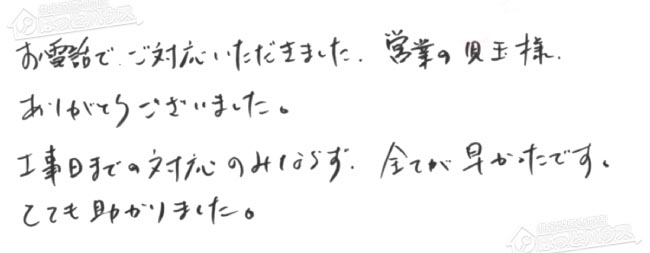 お電話でご対応いただきました、営業の児玉様、
ありがとうございました。
工事日までの対応のみならず、全てが早かったです。
とても助かりました。